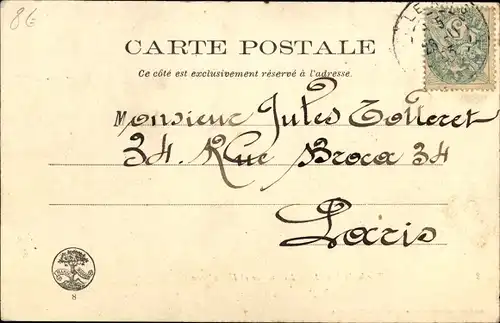 8€
CARTE POSTALE
Ce côté est exclusivement réservé à l'adresse.
Monsieur Jules Tolleret
34. Rue Broca 34
Paris
8